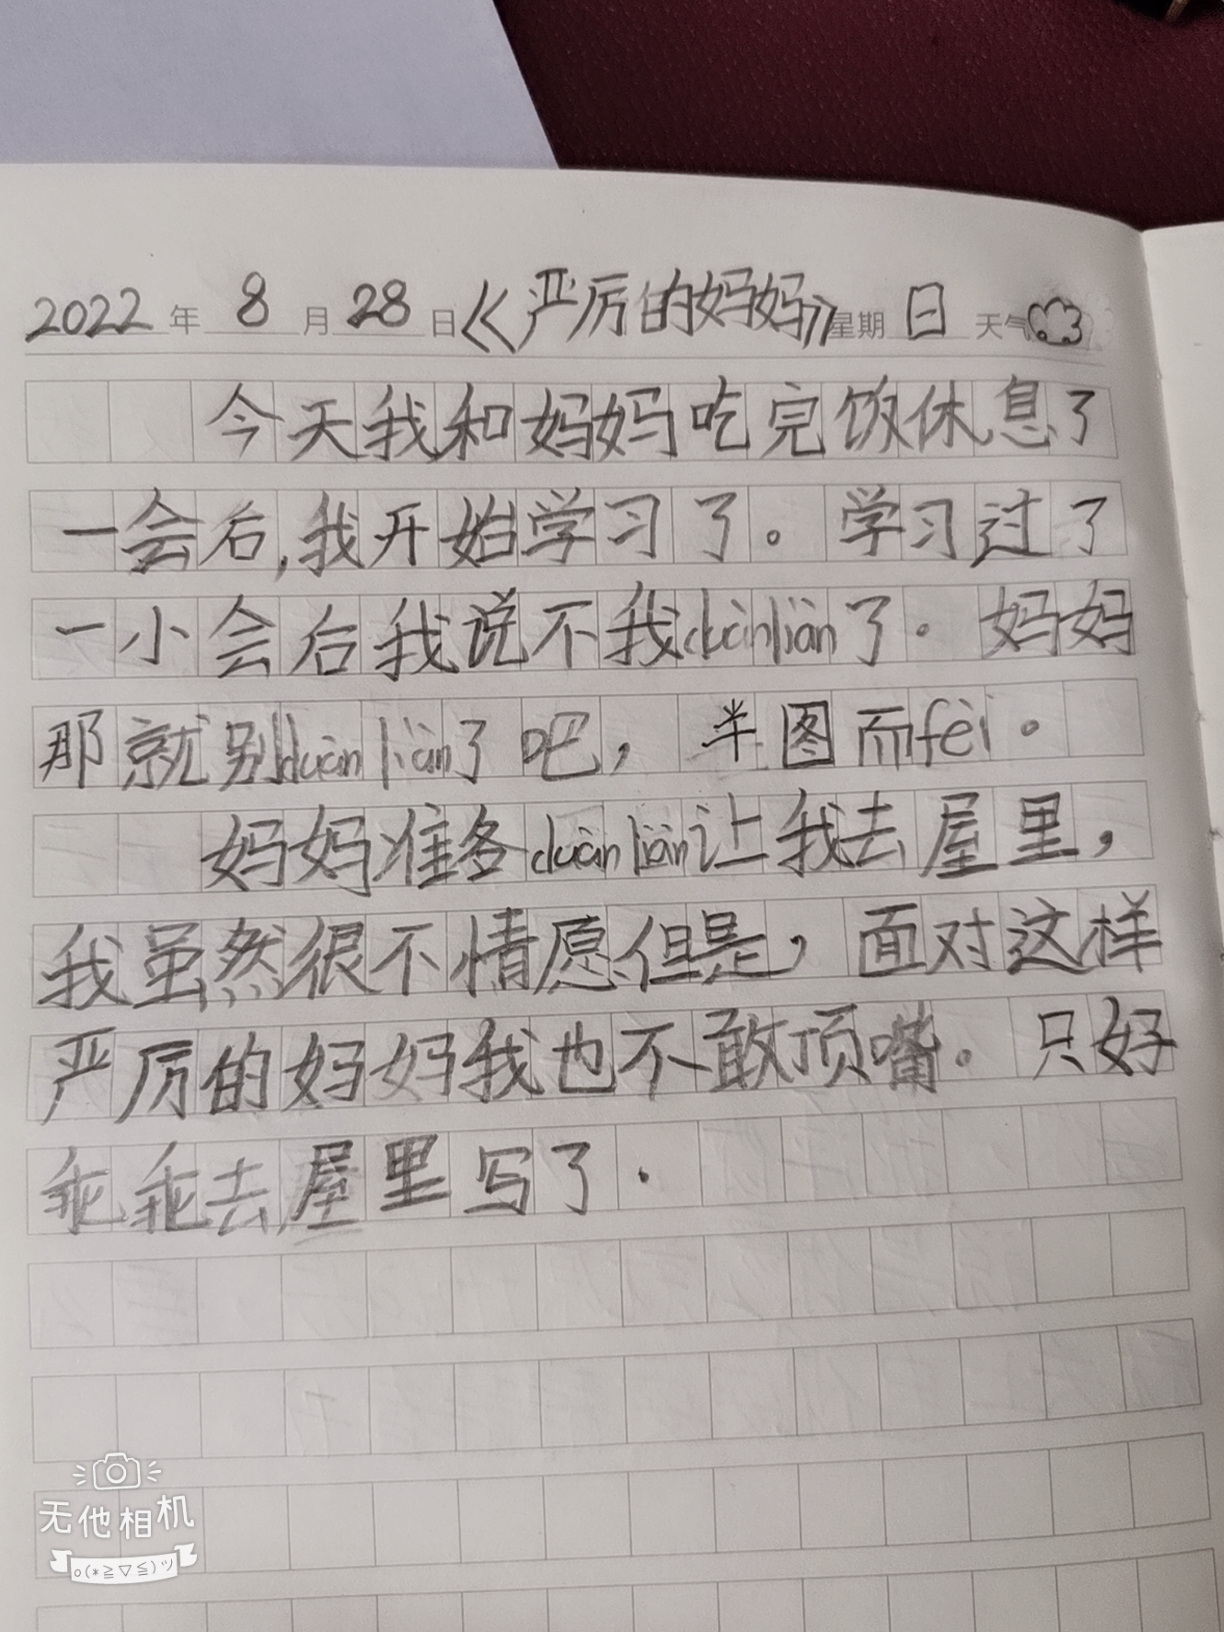 2022年 8月 28日《严厉的妈妈》星期 日 天气
今天我和妈妈吃完饭休息了
一会后,我开始学习了。学习过了
一小会后我说不我duànliàn了。妈妈
那就别duànliàn了吧，半图而fèi。
妈妈准备duànliàn让我去屋里，
我虽然很不情愿但是，面对这样
严厉的妈妈我也不敢顶嘴。只好
乖乖去屋里写了.
无他相机
o(*≧▽≦)ツ